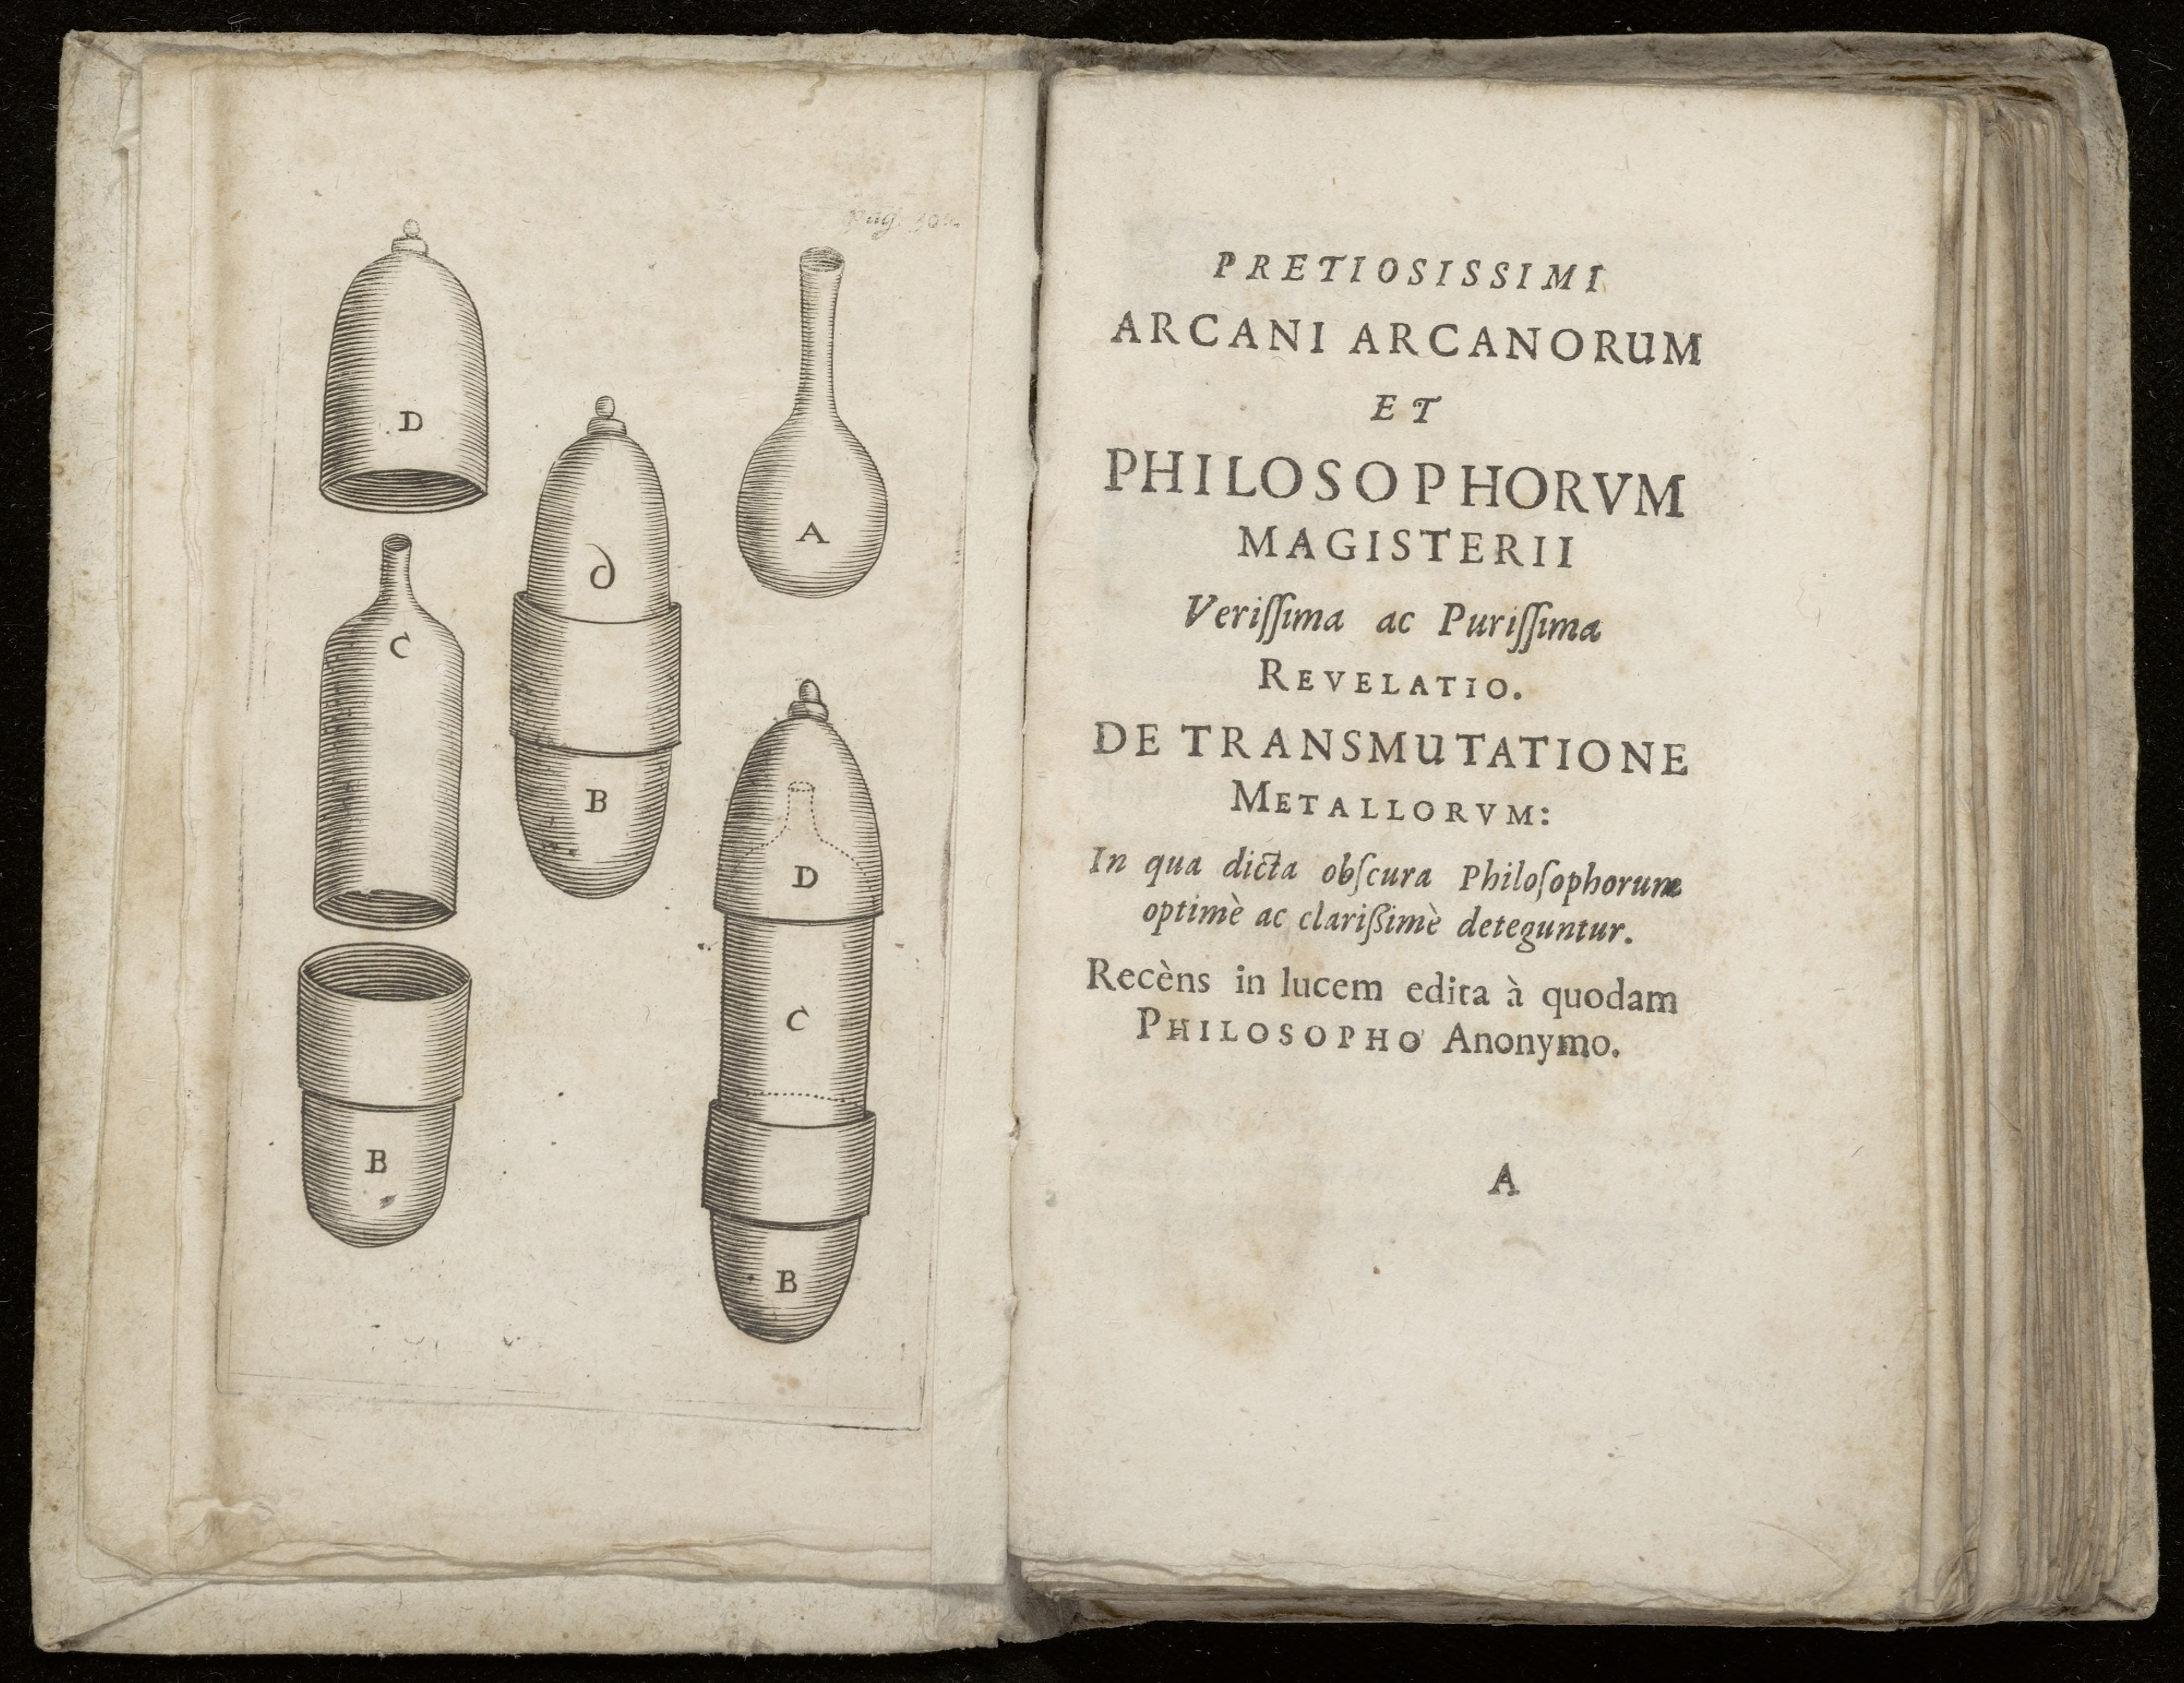 D
A
C
D
B
D
C
B
B
PRETIOSISSIMI
ARCANI ARCANORUM
ET
PHILOSOPHORVM
MAGISTERII
Veriſſima ac Puriſſima
REVELATIO.
DE TRANSMUTATIONE
METALLORVM:
In qua dicta obſcura Philoſophorum
optimè ac clarißimè deteguntur.
Recèns in lucem edita à quodam
PHILOSOPHO Anonymo.
A